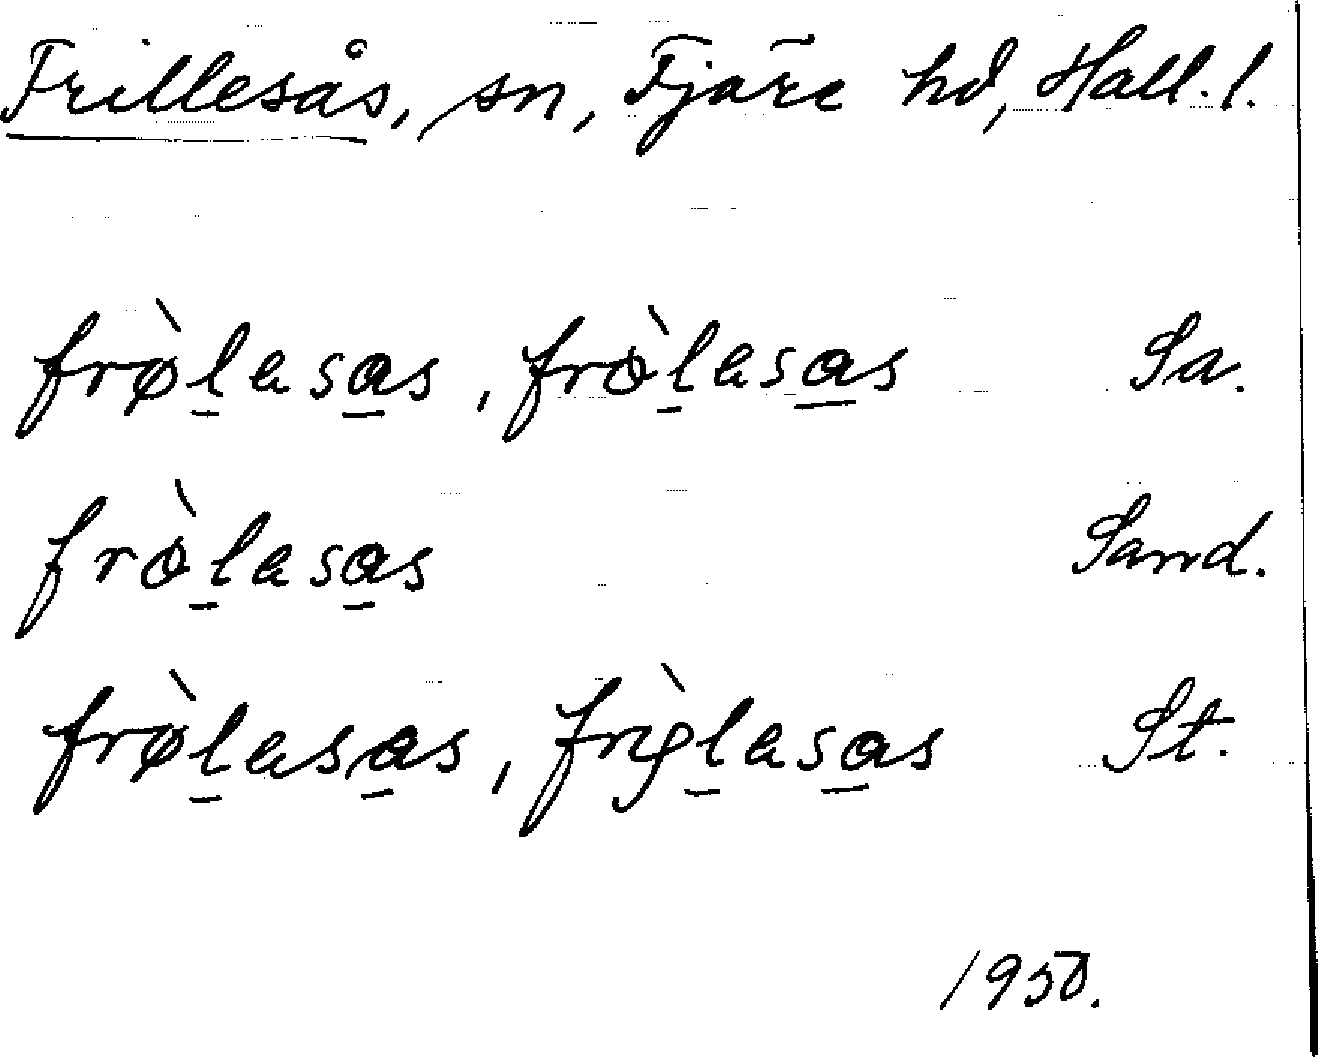 Frillesås, sn, Fjäre hd, Hall. l.
frø̀lasas, fròlasas Sa.
fròlasas Sand.
frø̀lasas, frỳlasas St.
1950.